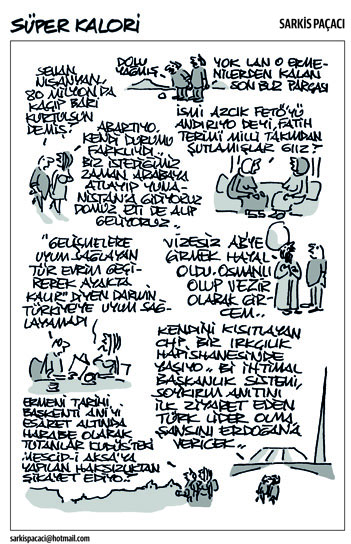 SÜPER KALORİ
SARKİS PAÇACI
SELAN,
NİŞANYAN.
80 MİLYON'DA
KAÇIP BARİ
KURTULSUN
DEMİŞ?
ABARTIYO,
KENDİ DURUMU
FARKLIYDI..
BİZ İSTEDİĞİMİZ
ZAMAN, ARABAYA
ATLAYIP YUNA-
NİSTAN'A GİDİYORUZ
DOMUZ ETİ DE ALIP
GELİYORUZ..
DOLU
YAĞMIŞ
YOK LAN O ERME-
NİLERDEN KALAN
SON BUZ PARÇASI
İSMİ AZCIK FETÖ'YÜ
ANDIRIYO DEYİ, FATİH
TERİMİ MİLLİ TAKIMDAN
ŞUTLAMIŞLAR GIIZ?
"GELİŞMELERE
UYUM SAĞLAYAN
TÜR EVRİM GEÇİ-
REREK AYAKTA
KALIR" DİYEN DARWİN
TÜRKİYE'YE UYUM SAĞ-
LAYAMADI
VİZESİZ AB'YE
GİRMEK HAYAL
OLDU. OSMANLI
OLUP VEZİR
OLARAK GİR-
CEM..
KENDİNİ KISITLAYAN
CHP, BİR IRKÇILIK
HAPİSHANESİNDE
YAŞIYO.. Bİ İHTİMAL
BAŞKANLIK SİSTEMİ,
SOYKIRIM ANITINI
İLK ZİYARET EDEN
TÜRK LİDER OLMA
ŞANSINI ERDOĞAN'A
VERİCEK..
ERMENİ TARİHİ
BAŞKENTİ ANİ'Yİ
ESARET ALTINDA
HARABE OLARAK
TUTANLAR KUDÜS'TEKİ
MESCİD-İ AKSA'YA
YAPILAN HAKSIZLIKTAN
ŞİKAYET EDİYO..
sarkispacaci@hotmail.com